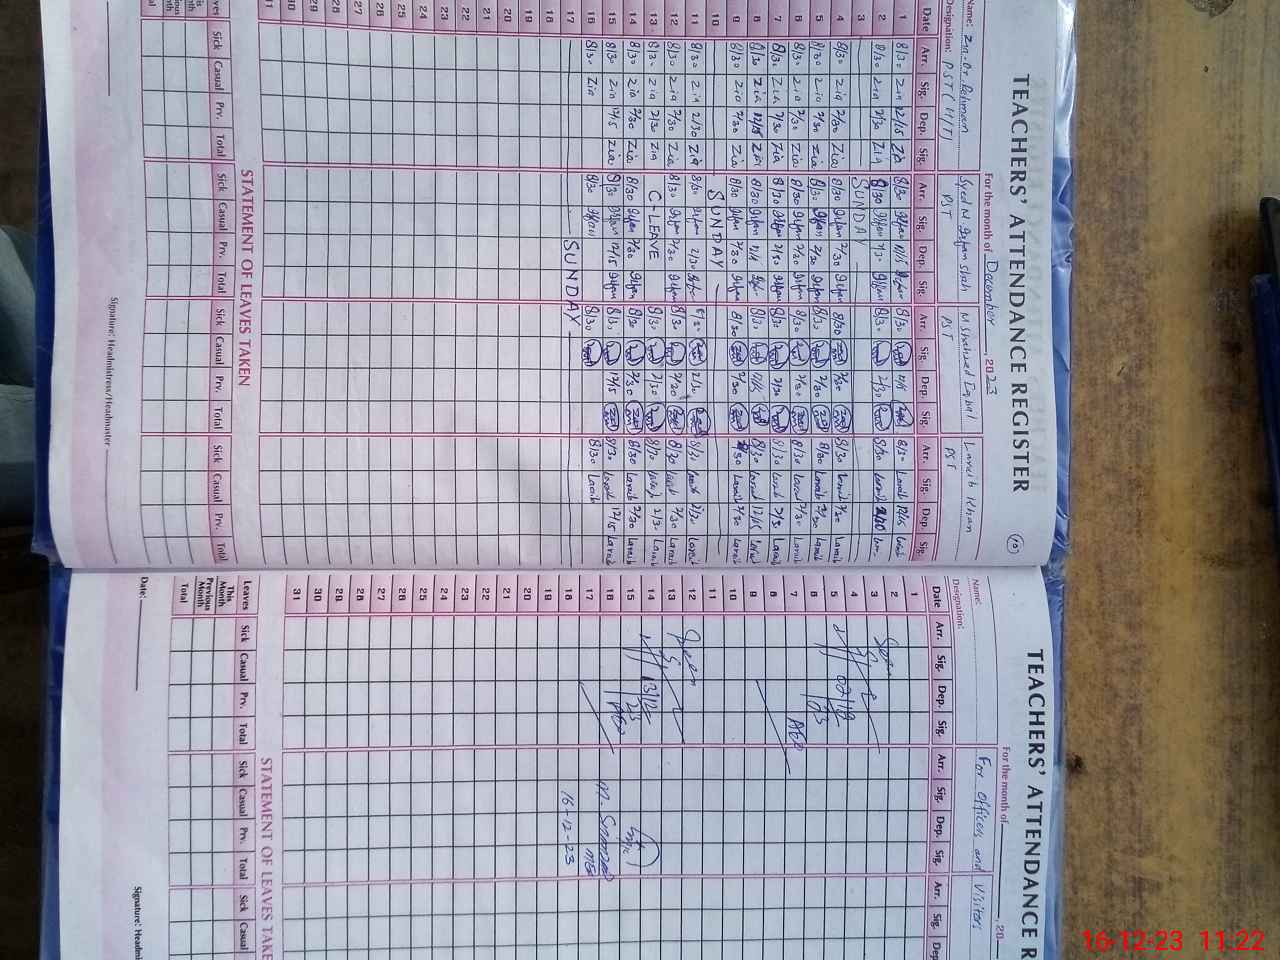 TEACHERS' ATTENDANCE REGISTER
(10)
For the month of December, 2023
Name: Zia-Ur-Rehman
Syed M Irfan Shah
M Shahzad Iqbal
Laraib Khan
Designation: PST
PST
PST
PST
Date Arr. Sig. Dep. Sig. Arr. Sig. Dep. Sig. Arr. Sig. Dep. Sig. Arr. Sig. Dep. Sig.
1 8/30 Zia 12/15 Zia 8/30 Irfan 12/15 Irfan 8/30 12/15 8/30 Laraib 12/15 Laraib
2 8/30 Zia 2/30 Zia 8/30 Irfan 2/30 Irfan 8/30 2/30 8/30 Laraib 2/30
3 SUNDAY
4 8/30 Zia 2/30 Zia 8/30 Irfan 2/30 Irfan 8/30 2/30 8/30 Laraib 2/30 Laraib
5 8/30 Zia 2/30 Zia 8/30 Irfan 2/30 Irfan 8/30 2/30 8/30 Laraib 2/30 Laraib
6 8/30 Zia 2/30 Zia 8/30 Irfan 2/30 Irfan 8/30 2/30 8/30 Laraib 2/30 Laraib
7 8/30 Zia 2/30 Zia 8/30 Irfan 2/30 Irfan 8/30 2/30 8/30 Laraib 2/30 Laraib
8 8/30 Zia 12/15 Zia 8/30 Irfan 8/30 12/15 8/30 Laraib 12/15 Laraib
9 8/30 Zia 2/30 Zia 8/30 Irfan 2/30 Irfan 8/30 2/30 8/30 Laraib 2/30 Laraib
10 SUNDAY
11 8/30 Zia 2/30 Zia 8/30 Irfan 2/30 8/30 2/30 8/30 Laraib 2/30 Laraib
12 8/30 Zia 2/30 Zia 8/30 Irfan 2/30 Irfan 8/30 2/30 8/30 Laraib 2/30 Laraib
13 8/30 Zia 2/30 Zia C-LEAVE 8/30 2/30 8/30 Laraib 2/30 Laraib
14 8/30 Zia 2/30 Zia 8/30 Irfan 2/30 Irfan 8/30 2/30 8/30 Laraib 2/30 Laraib
15 8/30 Zia 12/15 Zia 8/30 Irfan 12/15 Irfan 8/30 12/15 8/30 Laraib 12/15 Laraib
16 8/30 Zia 8/30 Irfan 8/30 8/30 Laraib
17 SUNDAY
18
19
20
21
22
23
24
25
26
27
28
29
30
31
STATEMENT OF LEAVES TAKEN
Sick Casual Prv. Total Sick Casual Prv. Total Sick Casual Prv. Total Sick Casual Prv. Total
Total
Signature: Headmistress/Headmaster
TEACHERS' ATTENDANCE R
For the month of , 20
Name:
For Officers and Visitors
Designation:
Date Arr. Sig. Dep. Sig. Arr. Sig. Dep. Sig. Arr. Sig. Dep.
1
2
3
4
5
6
7
8
9
10
11
12
13
14
15
16
17
18
19
20
21
22
23
24
25
26
27
28
29
30
31
Seen
AEO
Seen
13/12/23
AEO
16-12-23
STATEMENT OF LEAVES TAKE
Leaves Sick Casual Prv. Total Sick Casual Prv. Total Sick Casual
This Month
Previous Month
Total
Date:
Signature: Headmi
16-12-23 11:22